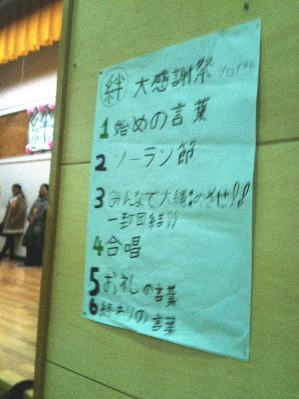 絆 大感謝祭 プログラム
1 始めの言葉
2 ソーラン節
3 みんなで大縄:めざせ!!
一致団結!!
4 合唱
5 お礼の言葉
6 終わりの言葉
絆